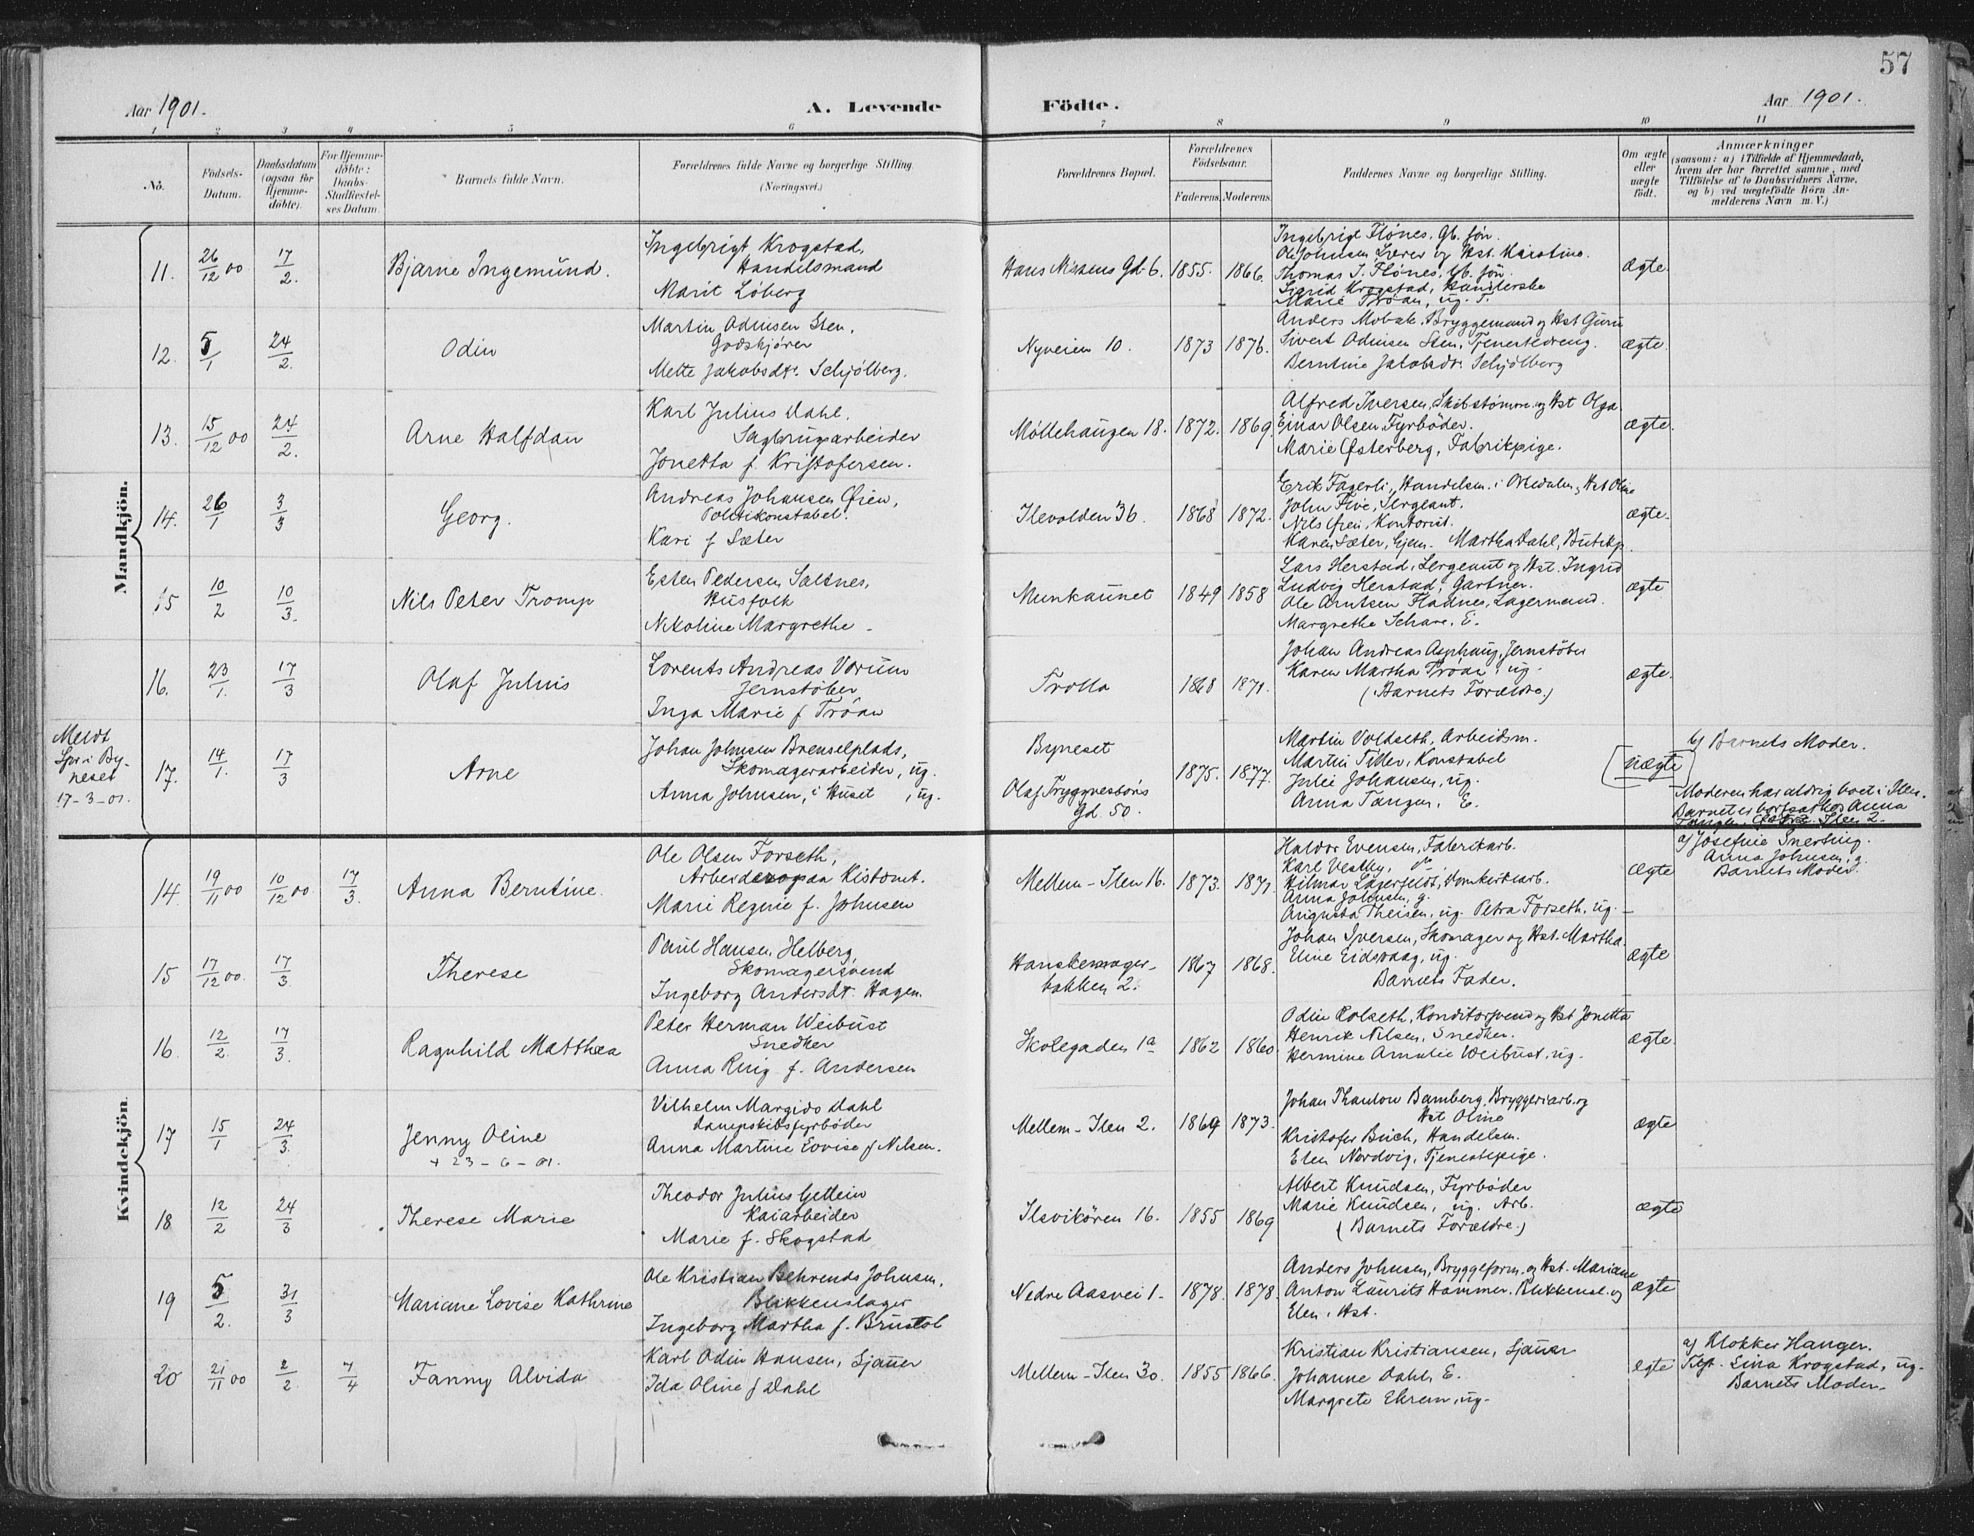 57
Aar 1901.
A. Levende Födte.
Aar 1901.
1 2 3 4 5 6 7 8 9 10 11
No.
Födsels-
Datum.
Daabsdatum
(ogsaa for
Hjemme-
döbte).
For Hjemme-
döbte:
Daabs-
Stadfæstel-
ses Datum.
Barnets fulde Navn.
Forældrenes fulde Navne og borgerlige Stilling.
(Næringsvei.)
Forældrenes Bopæl.
Forældrenes
Födselsaar.
Faderens. Moderens.
Faddernes Navne og borgerlige Stilling.
Om ægte
eller
uægte
födt.
Anmærkninger
(saasom: a) i Tilfælde af Hjemmedaab,
hvem der har forrettet samme, med
Tilföielse af to Daabsvidners Navne,
og b) ved uægtefödte Börn An-
melderens Navn m. V.)
Mandkjön.
11.
26/12 00
17/2.
Bjarne Ingemund.
Ingebrigt Krogstad,
Handelsmand
Marit Löberg
Hans Nissens Gd. 6.
1855. 1866.
Ingebrigt Flönes, Gb. sön.
Ole Johnsen, Lærer og Hst. Kirstine.
Thomas J. Flönes, Gb. sön.
Sigrid Krogstad, Handlerske
Marie Tröan, ug. T.
ægte
12.
5/1
24/2.
Odin
Martin Odinsen Sten,
Godskjörer
Mette Jakobsdtr. Schjölberg.
Nyveien 10.
1873 1876.
Anders Mobak, Bryggemand og Hst Guru
Sivert Odinsen Sten, Tjenestedreng.
Berntine Jakobsdr. Schjölberg
ægte.
13.
15/12 00
24/2.
Arne Halfdan
Karl Julius Dahl,
Sagbrugsarbeider
Jonetta f. Kristofersen.
Möllehaugen 18.
1872. 1869.
Alfred Iversen, Skibstömm. og Hst Olga.
Einar Olsen, Fyrböder.
Marie Østerberg, Fabrikpige.
ægte.
14.
26/1
3/3
Georg.
Andreas Johansen Øien,
Politikonstabel.
Kari f Sæter
Ilevolden 36.
1868 1872.
Erik Fagerli, Handelsm. i Orkedalen, Hst Oline
John Five, Sergeant.
Nils Øien, Kontorist.
Karen Sæter, Ejem. Martha Dahl, Butikp.
ægte.
15
10/2
10/3.
Nils Peter Tromp
Esten Pedersen Saltnes,
Husfolk
Nikoline Margrethe
Munkaunet
1849 1858
Lars Herstad, Sergeant og Hst. Ingrid
Ludvig Herstad, Gartner.
Ole Arntsen Fladnes, Lagermand.
Margrethe Schare, E.
ægte
16.
23/1.
17/3
Olaf Julius
Lorents Andreas Vorum
Jernstöber
Inga Marie f Tröan
Trolla
1868 1871.
Johan Andreas Asphaug, Jernstöber
Karen Martha Tröan, ug.
(Barnets Forældre.)
ægte.
Meldt
Spr. i By-
neset
17-3-01.
17.
14/1.
17/3
Arne
Johan Johnsen Brenselplads,
Skomagerarbeider, ug.
Anna Johnsen, i Huset, ug.
Byneset
Olaf Tryggvessöns
Gd. 50.
1875. 1877.
Martin Voldseth, Arbeidsm.
Martin Tiller, Konstabel
Julie Johansen, ug.
Anna Tangen, E.
uægte
b) Barnets Moder.
Moderen har aldrig boet i Ilen.
Barnet er bortsat hos Anna
Tangen, Østre Ilen 2.
Kvindekjön.
14.
19/11 00
10/12 00
17/3.
Anna Berntine.
Ole Olsen Forseth,
Arbeider paa Kistomt.
Marie Regine f. Johnsen
Mellem-Ilen 16.
1873. 1871.
Haldor Evensen, Fabrikarb.
Karl Vestby, do
Hilmar Lagerfeldt, Domkirkearb.
Anna Johnsen, g.
Augusta Theisen, ug. Petra Forseth, ug.
ægte
a) Josefine Snerting.
Anna Johnsen, g.
Barnets Moder.
15
17/12 00.
17/3.
Therese
Paul Hansen Helberg,
Skomagersvend
Ingeborg Andersdt. Hagen.
Hanskemager-
bakken 2.
1867 1868.
Johan Iversen, Skomager og Hst. Martha.
Eline Eidsvaag, ug.
Barnets Fader.
ægte
16.
12/2.
17/3.
Ragnhild Matthea
Peter Herman Weibust
Snedker
Anna Ring f. Andersen
Skolegaden 1a
1862 1860.
Odin Rolseth, Konditorsvend og Hst Jonetta
Henrik Nilsen, Snedker.
Hermine Amalie Weibust, ug.
ægte.
17
15/1
24/3.
Jenny Oline
+ 23-6-01.
Vilhelm Margido Dahl
Dampskibsfyrböder
Anna Martine Lovise f Nilsen.
Mellem-Ilen 2.
1869 1873.
Johan Thanlow Bamberg, Bryggeriarb. og
Hst Oline
Kristofer Buch, Handelsm.
Elen Nordvig, Tjenestepige.
ægte
18
12/2
24/3
Therese Marie
Theodor Julius Gellein
Kaiarbeider
Marie f. Skogstad
Ilsvikören 16.
1855 1869
Albert Knudsen, Fyrböder
Marie Knudsen, ug. Arb.
(Barnets Forældre.)
ægte
19
5/2.
31/3
Mariane Lovise Kathrine
Ole Kristian Behrends Johnsen,
Blikkenslager
Ingeborg Martha f. Brustöl
Nedre Aasvei 1.
1878. 1878.
Anders Johnsen, Bryggeform. og Hst. Mariane
Anton Laurits Hammer, Blikkensl. og
Elen, Hst.
ægte
20
21/11 00
2/2
7/4
Fanny Alvida
Karl Odin Hansen, Sjauer
Ida Oline f Dahl
Mellem-Ilen 30.
1855 1866.
Kristian Kristiansen, Sjauer
Johanne Dahl, E.
Margrete Ekrem, ug.
ægte
a) Klokker Hanger.
Test. Lina Krogstad, ug.
Barnets Moder.